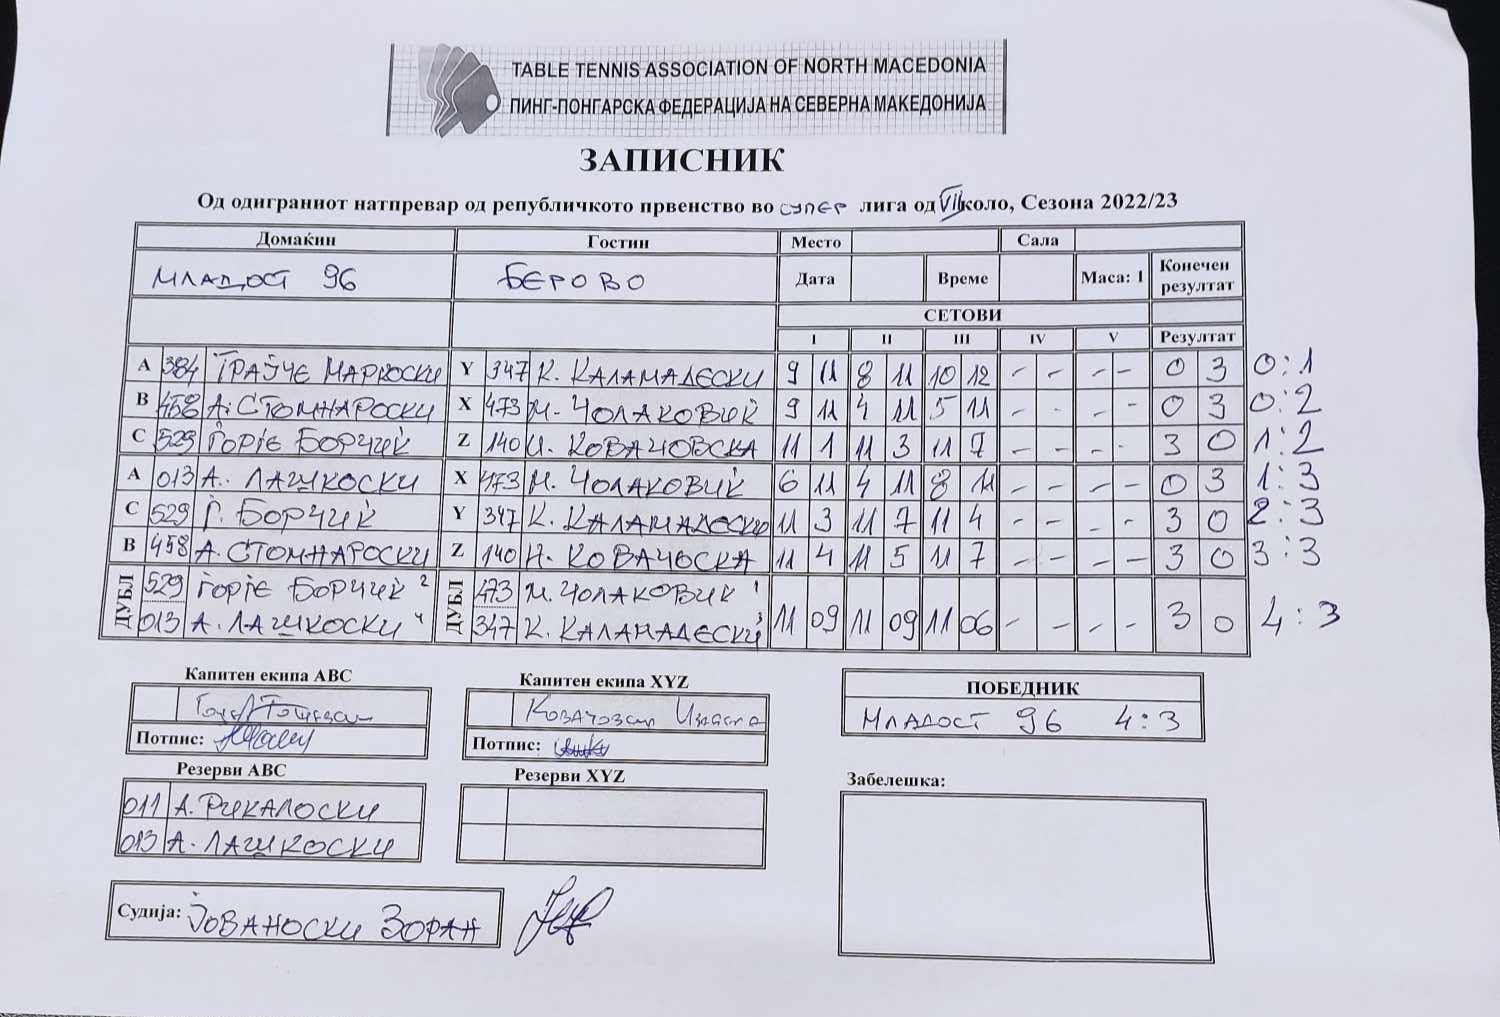 TABLE TENNIS ASSOCIATION OF NORTH MACEDONIA
ПИНГ-ПОНГАРСКА ФЕДЕРАЦИЈА НА СЕВЕРНА МАКЕДОНИЈА
ЗАПИСНИК
Од одиграниот натпревар од републичкото првенство во СУПЕР лига од VII коло, Сезона 2022/23
Домаќин Гостин Место Сала
МЛАДОСТ 96 БЕРОВО Дата Време Маса: 1 Конечен резултат
СЕТОВИ
I II III IV V Резултат
A 384 ТРАЈЧЕ МАРКОСКИ Y 347 К. КАЛАМАДЕСКИ 9 11 8 11 10 12 - - - - 0 3 0:1
B 458 А. СТОМНАРОСКИ X 473 М. ЧОЛАКОВИЌ 9 11 4 11 5 11 - - - - 0 3 0:2
C 529 ЃОРЃЕ БОРЧИЌ Z 140 И. КОВАЧОВСКА 11 1 11 3 11 7 - - - 3 0 1:2
A 013 А. ЛАШКОСКИ X 473 М. ЧОЛАКОВИЌ 6 11 4 11 8 11 - - - - 0 3 1:3
C 529 Ѓ. БОРЧИЌ Y 347 К. КАЛАМАДЕСКИ 11 3 11 7 11 4 - - - - 3 0 2:3
B 458 А. СТОМНАРОСКИ Z 140 И. КОВАЧОСКА 11 4 11 5 11 7 - - - - 3 0 3:3
ДУБЛ 529 ЃОРЃЕ БОРЧИЌ 2 ДУБЛ 473 М. ЧОЛАКОВИЌ 1
013 А. ЛАШКОСКИ 4 347 К. КАЛАМАДЕСКИ 3 11 09 11 09 11 06 - - - - 3 0 4:3
Капитен екипа ABC Капитен екипа XYZ ПОБЕДНИК
МЛАДОСТ 96 4:3
Потпис: Потпис:
Резерви ABC Резерви XYZ Забелешка:
011 А. РИКАЛОСКИ
013 А. ЛАШКОСКИ
Судија: ЈОВАНОСКИ ЗОРАН